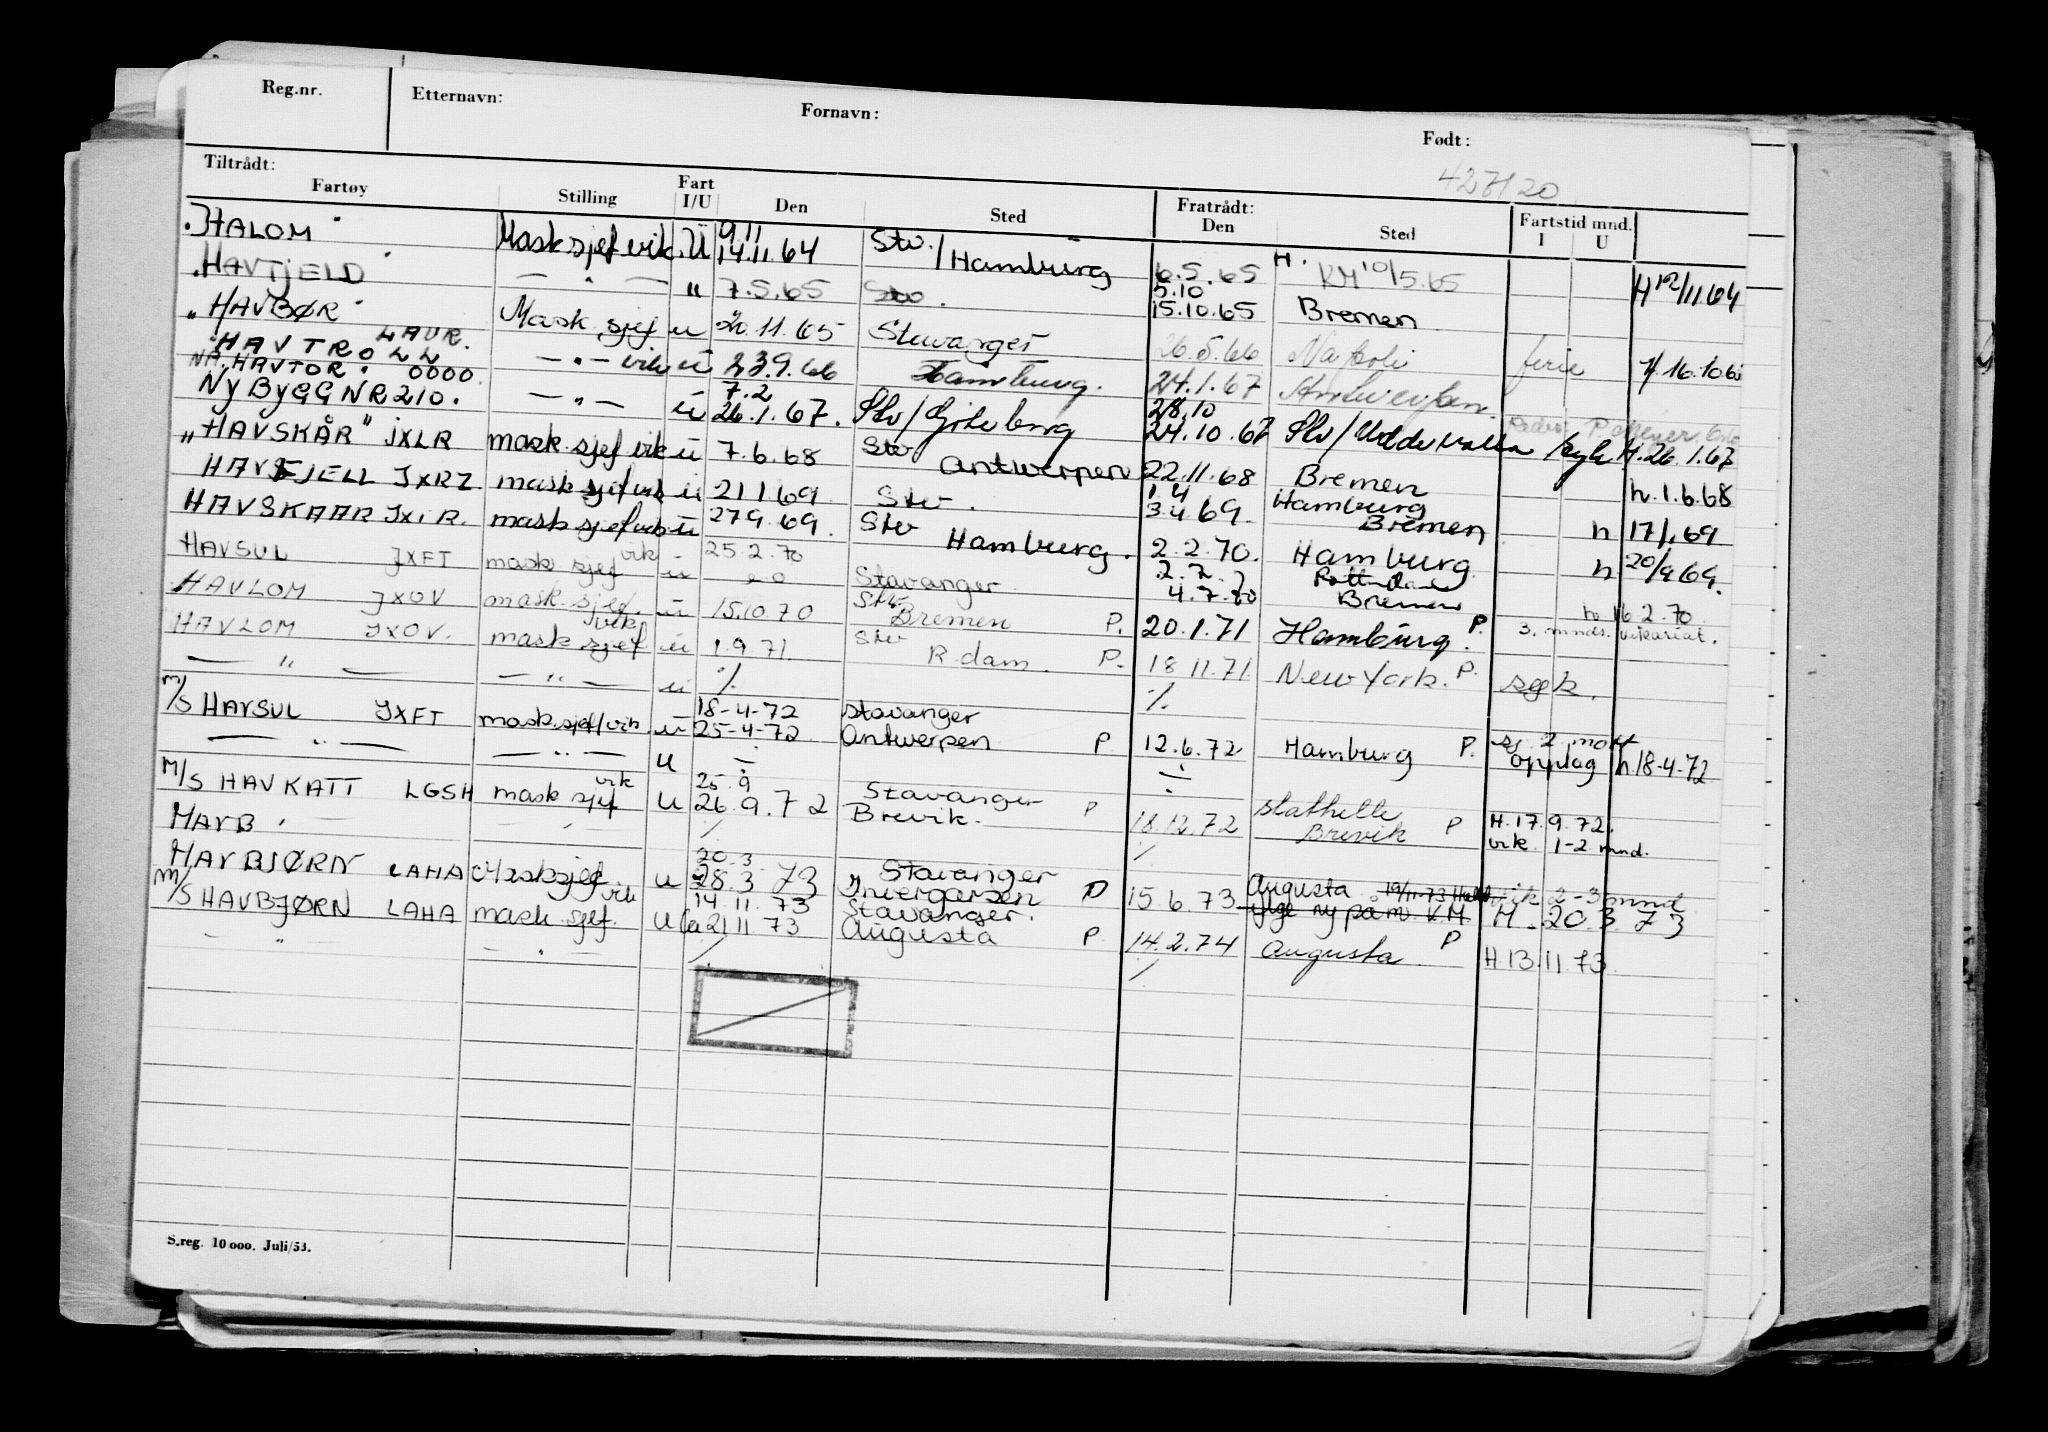 Reg.nr. Etternavn: Fornavn: Født:
427120
Tiltrådt: Fratrådt:
Fartøy Stilling Fart I/U Den Sted Den Sted Fartstid mnd. I U
"HALOM" Mask sjef vik. U 9.11 14.11.64 Stv. / Hamburg 6.5.65 H. KM 10/5.65 H 12/11.64
"HAVFJELD — " — " 7.5.65 Stv. 5.10 15.10.65 Bremen
"HAVBØR" Mask sjef. u 20.11.65 Stavanger 26.5.66 Napoli ferie
"HAVTROLL LAUR. — " — vik u 23.9.66 Hamburg. 24.1.67 Antwerpen.
NÅ. HAVTOR" 0000.
NYBYGG NR 210. — " — u 7.2 26.1.67. Stv / Göteborg 28.10 24.10.67 Stv / Uddevalla syk H. 26.1.67
"HAVSKÅR" JXLR mask sjef vik u 7.6.68 Stv Antwerpen 22.11.68 Bremen h. 1.6.68
HAVFJELL JXRZ mask sjef vik u 21 1 69 Stv. 1.4 3.4 69. Hamburg Bremen h 17/1.69
HAVSKAAR JXLR. mask sjef vik u 27 9. 69. Stv Hamburg. 2.2.70. Hamburg h 20/9 69.
HAVSUL JXFT mask sjef vik u 25.2.70 Stavanger 4.7.70 Bremen h 16 2.70
HAVLOM JXOV mask. sjef. u 15.10.70 Stv. Bremen P. 20.1.71 Hamburg. P. 3. mnds. vikariat.
HAVLOM JXOV. mask sjef vik u 1.9.71. Stv R.dam. P. 18 11.71 New York. P. syk.
— " — — " — u ./. ./.
m/s HAVSUL JXFT mask.sjef/vik. u 18-4-72 25-4-72 Stavanger Antwerpen P 12.6.72 Hamburg P. opplag h 18-4-72
— " — — " — u
M/S HAVKATT LGSH mask sjef vik u 25.9 26.9.72 Stavanger Brevik. P 18.12.72 Stathelle Brevik P H. 17.9.72. vik 1-2 mnd.
HAVB
HAVBJØRN LAHA Masksjef u 20.3 28.3 73 Stavanger P 15.6.73 Augusta vik 2-3 mnd H. 20.3 73
m/s HAVBJØRN LAHA mask. sjef. vik u 14.11.73 21 11 73 Stavanger. Augusta P 14.2.74 Augusta P H.13.11.73.
— " — — " —
S.reg. 10 000. Juli/53.